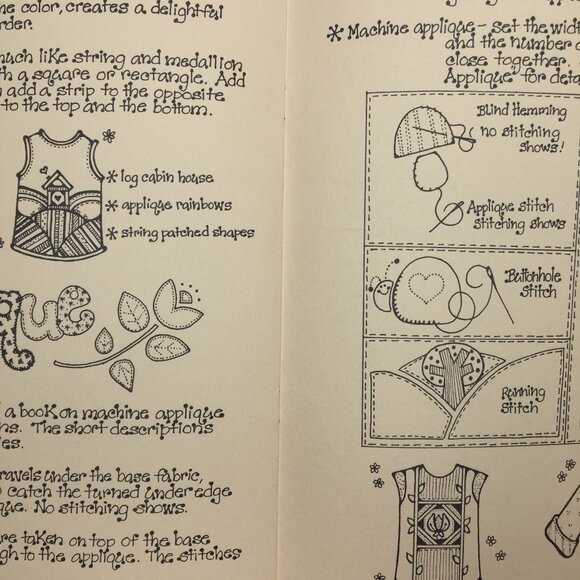 e color, creates a delightful
rder.
much like string and medallion
h a square or rectangle. Add
add a strip to the opposite
to the top and the bottom.
* log cabin house
* applique rainbows
* string patched shapes
que
a book on machine applique
ns. The short descriptions
ies.
travels under the base fabric,
catch the turned under edge
que. No stitching shows.
re taken on top of the base
gh to the applique. The stitches
* Machine applique - Set the widt
and the number o
close together.
Applique" for deta
Blind Hemming
no stitching
shows!
Applique stitch
stitching shows
Buttonhole
Stitch
Running
Stitch